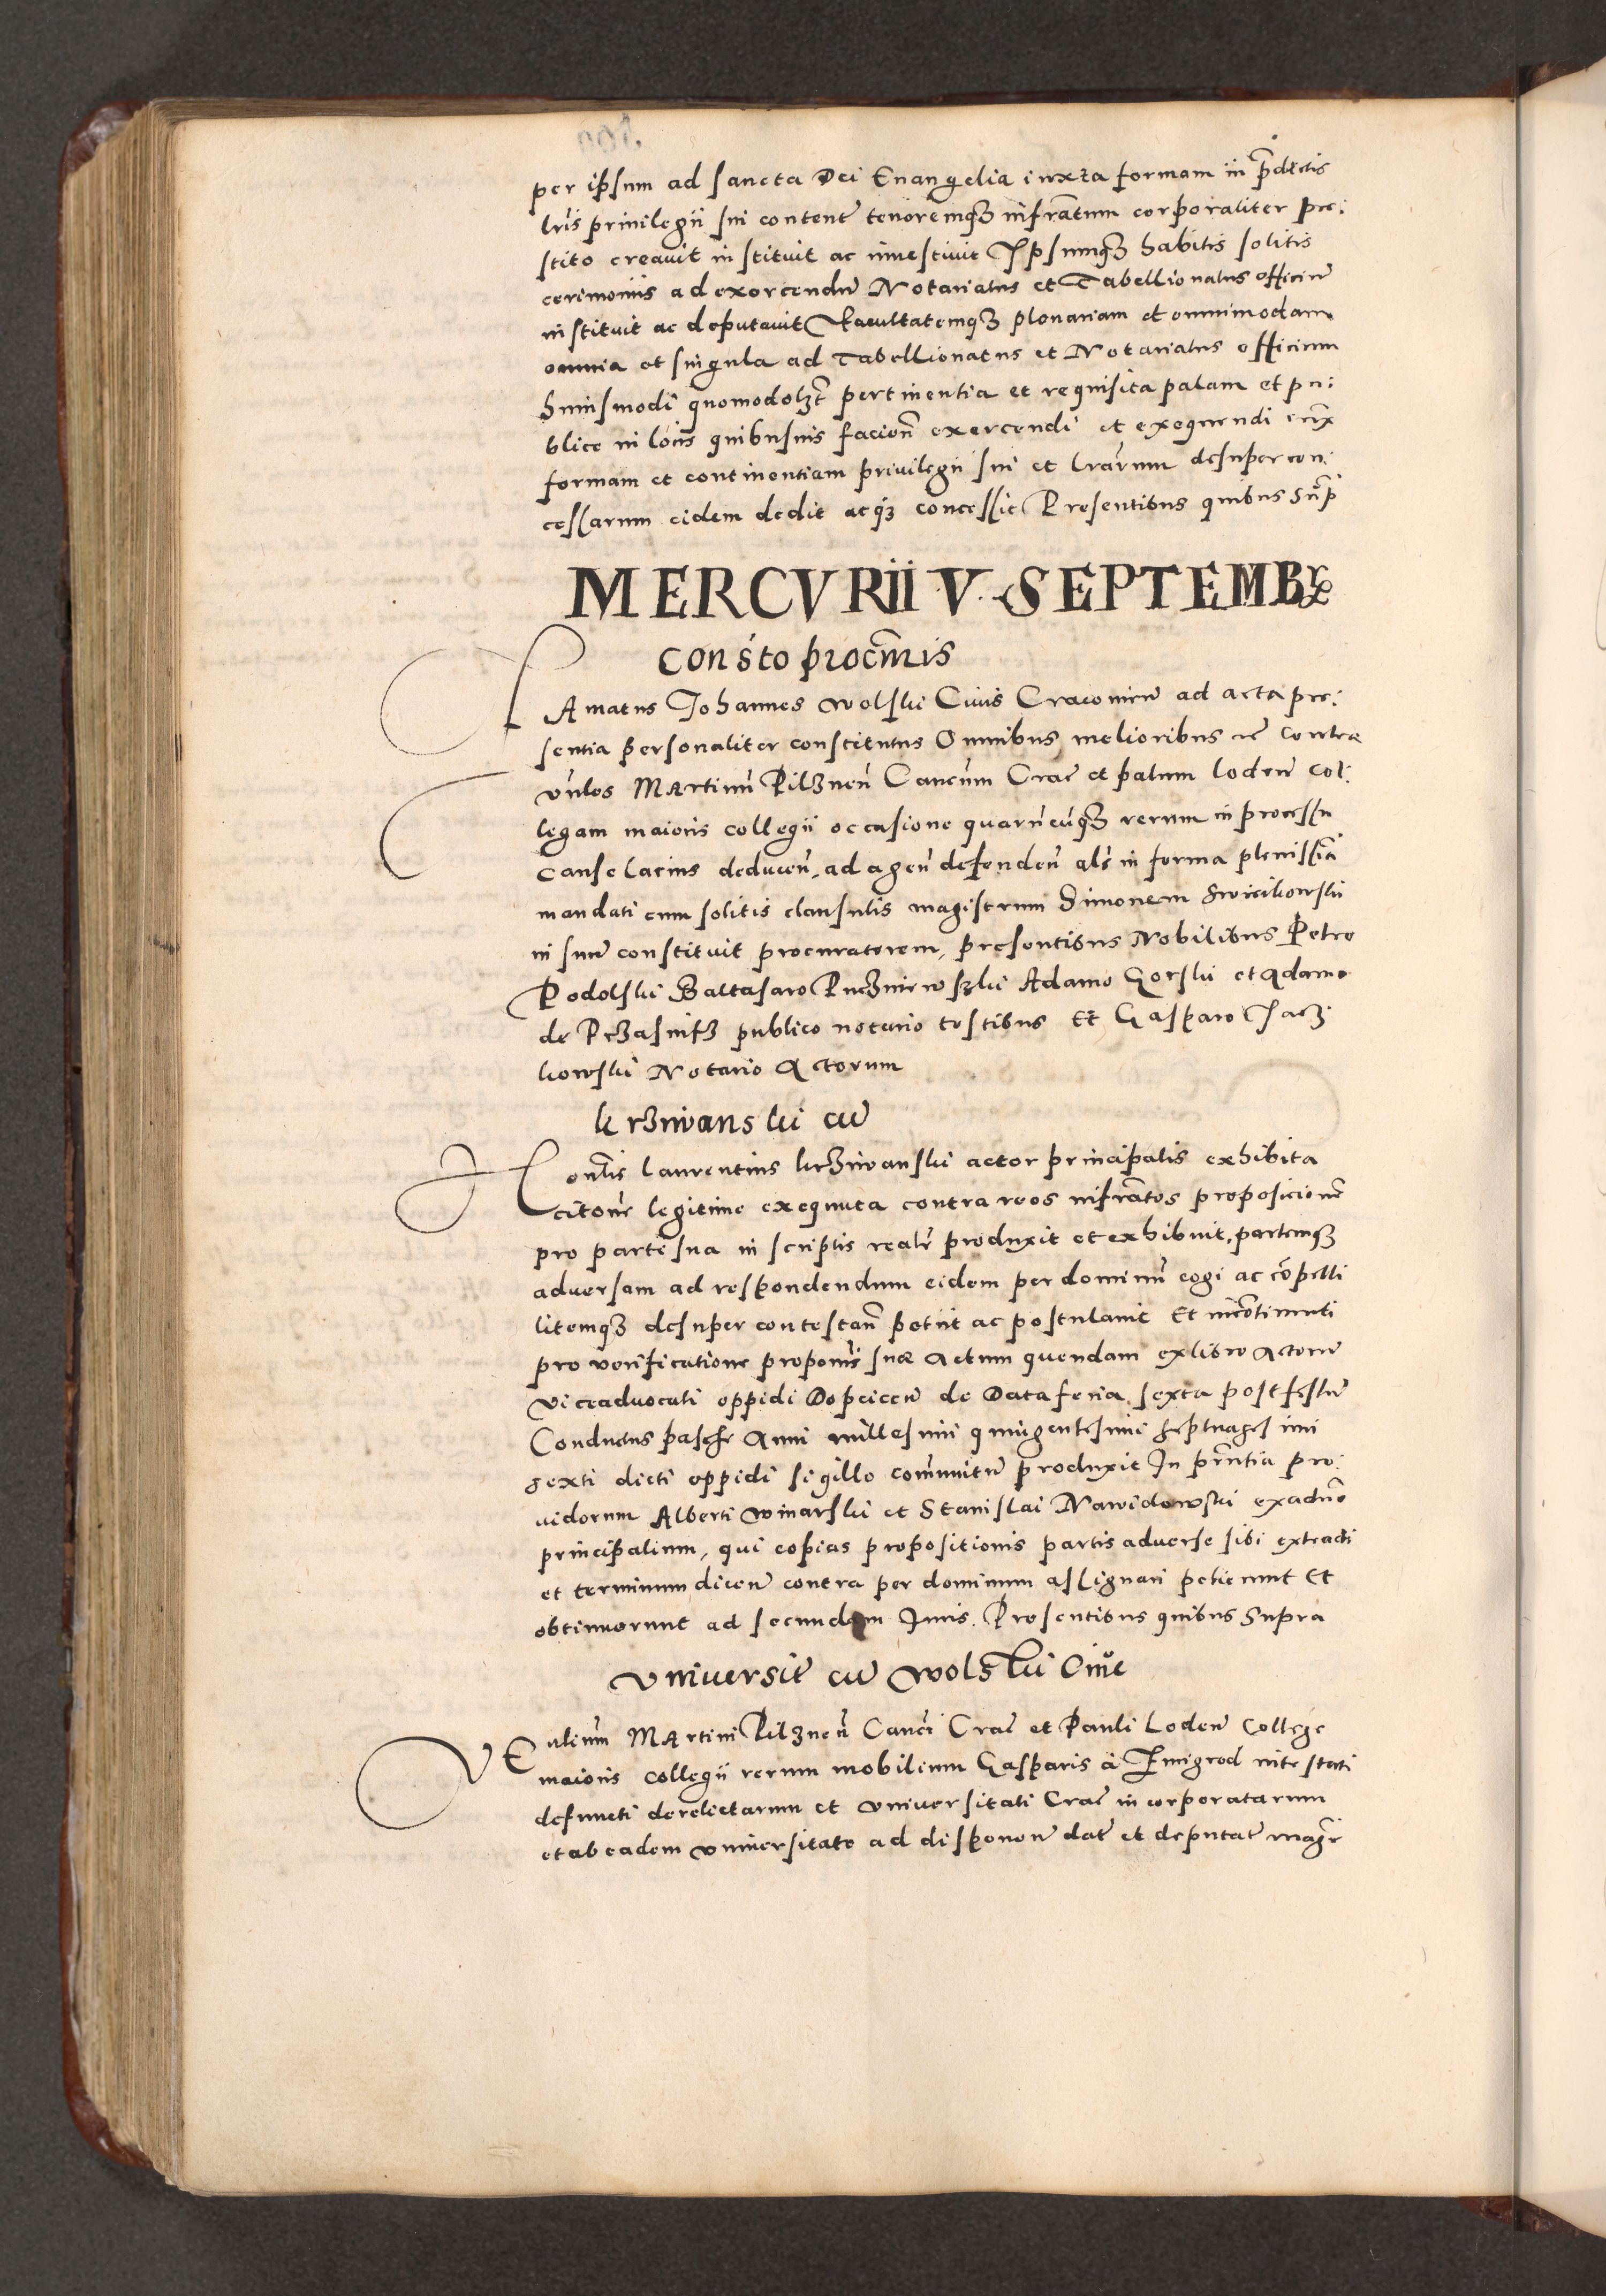 per ipsum ad sancta Dei Euangelia iuxta formam in p̄dictis
lr̄is priuilegii sui content̄ tenoremqȝ infrātum corporaliter pre:
stito creauit instituit ac inuestiuit Ipsumqȝ habitis solitis
cerimoniis ad exercendū Notariatus et Tabellionatus officiū
instituit ac deputauit Facultatemqȝ plenariam et omnimodam
omnia et singula ad Tabellionatus et Notariatus officium
huiusmodi quomodolȝt pertinentia et requisita palam et pu:
blice in locis quibusuis faciend̄ exercendi et exequendi iux̄
formam et continentiam priuilegii sui et lrārum desuper con:
cessarum eidem dedit atqȝ concessit Presentibus quibus sup̄
MERCVRII V SEPTEMBR
Constō procrn̄is
FAmatus Johannes Wolski Ciuis Cracouien̄ ad acta pre:
sentia personaliter constitutus Omnibus melioribus etc̄ contra
vn̄les Martinū Pilznen̄ Cancūm Crac̄ et palum loden̄ col:
legam maioris collegii occasione quarūcūqȝ rerum in processu
cause latius deducen̄, ad agen̄ defenden̄ als̄ in forma plenissīa
mandati cum solitis clausulis magistrum Simonem
in suū constituit procuratorem, presentibus Nobilibus Petro
Podolski Baltasaro Adamo Gorski et Adamo
de Przasnisz publico notario testibus Et Gasparo Jacz:
kowski Notario Actorum
krzinanski cū
Honl̄is laurentius krzinanski actor principalis exhibita
citōne legitime exequuta contra reos infrātos proposicionē
pro parte sua in scriptis realr̄ produxit et exhibuit, partemqȝ
aduersam ad respondendum eidem per dominū cogi ac cōpelli
litemqȝ desuper contestan̄ petiit ac postulauit Et incōtinenti
pro verificatione proponis̄ suæ Actum quendam ex libro Actorū
viceaduocati oppidi de Data feria sexta post festū
Conductus pasche Anni millesimi quingentesimi septuagesimi
sexti dicti oppidi sigillo com̄unitū produxit In prn̄tia pro:
uidorum Alberti Winarski et Stanislai Nawidowski ex aduēo
principalium, qui copias propositionis partis aduerse sibi extradi
et terminum dicen̄ contra per dominum assignari petierunt Et
obtinuerunt ad secundam Juris. Presentibus quibus Supra
Vniuersit̄ cū Wolski Ciue
VEn̄lium Martini Pilznen̄ Canci̅ Crac̄ et Pauli loden̄ College
maioris collegii rerum mobilium Gasparis a Zmigrod intestati
defuncti derelictarum et Vniuersitati Crac̄ incorporatarum
et ab eadem vniuersitate ad disponen̄ dat̄ et deputat̄ magr̄i